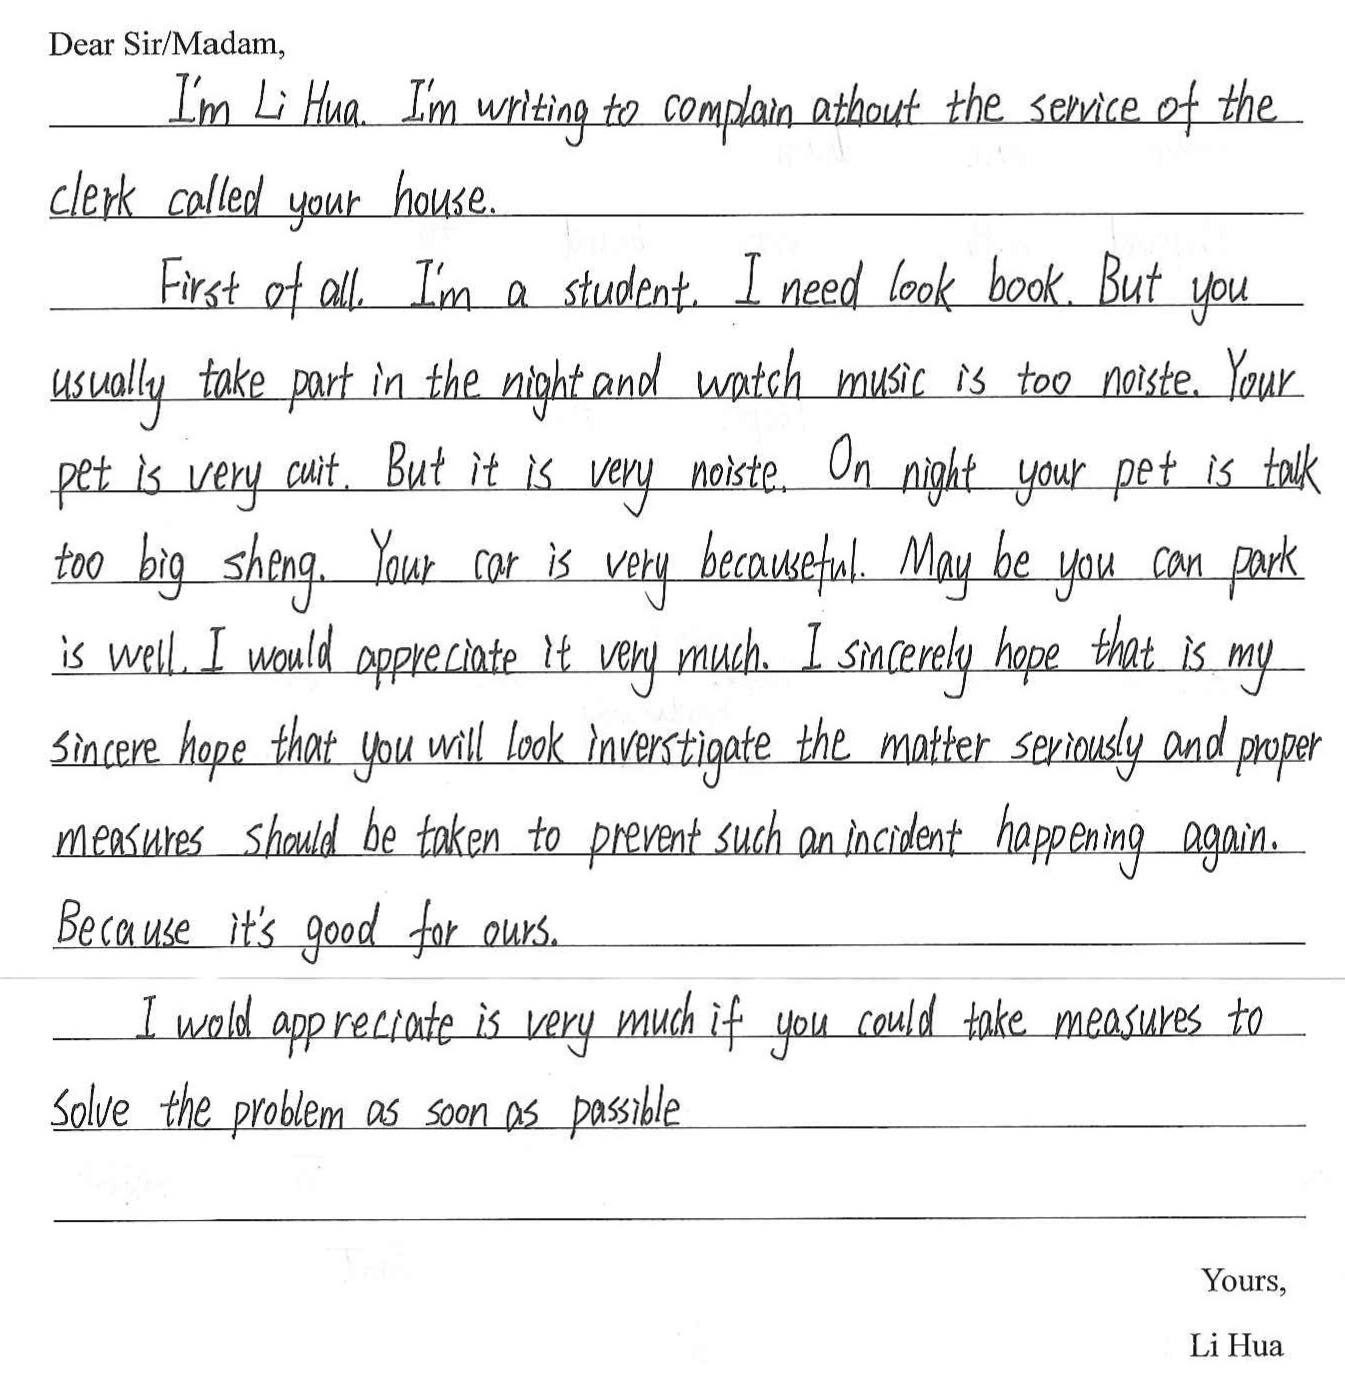 Dear Sir/Madam,
I'm Li Hua. I'm writing to complain athout the service of the
clerk called your house.
First of all. I'm a student. I need look book. But you
usually take part in the night and watch music is too noiste. Your
pet is very cuit. But it is very noiste. On night your pet is talk
too big sheng. Your car is very becauseful. May be you can park
is well. I would appreciate it very much. I sincerely hope that is my
sincere hope that you will look inverstigate the matter seriously and proper
measures should be taken to prevent such an incident happening again.
Because it's good for ours.
I wold appreciate is very much if you could take measures to
solve the problem as soon as passible
Yours,
Li Hua